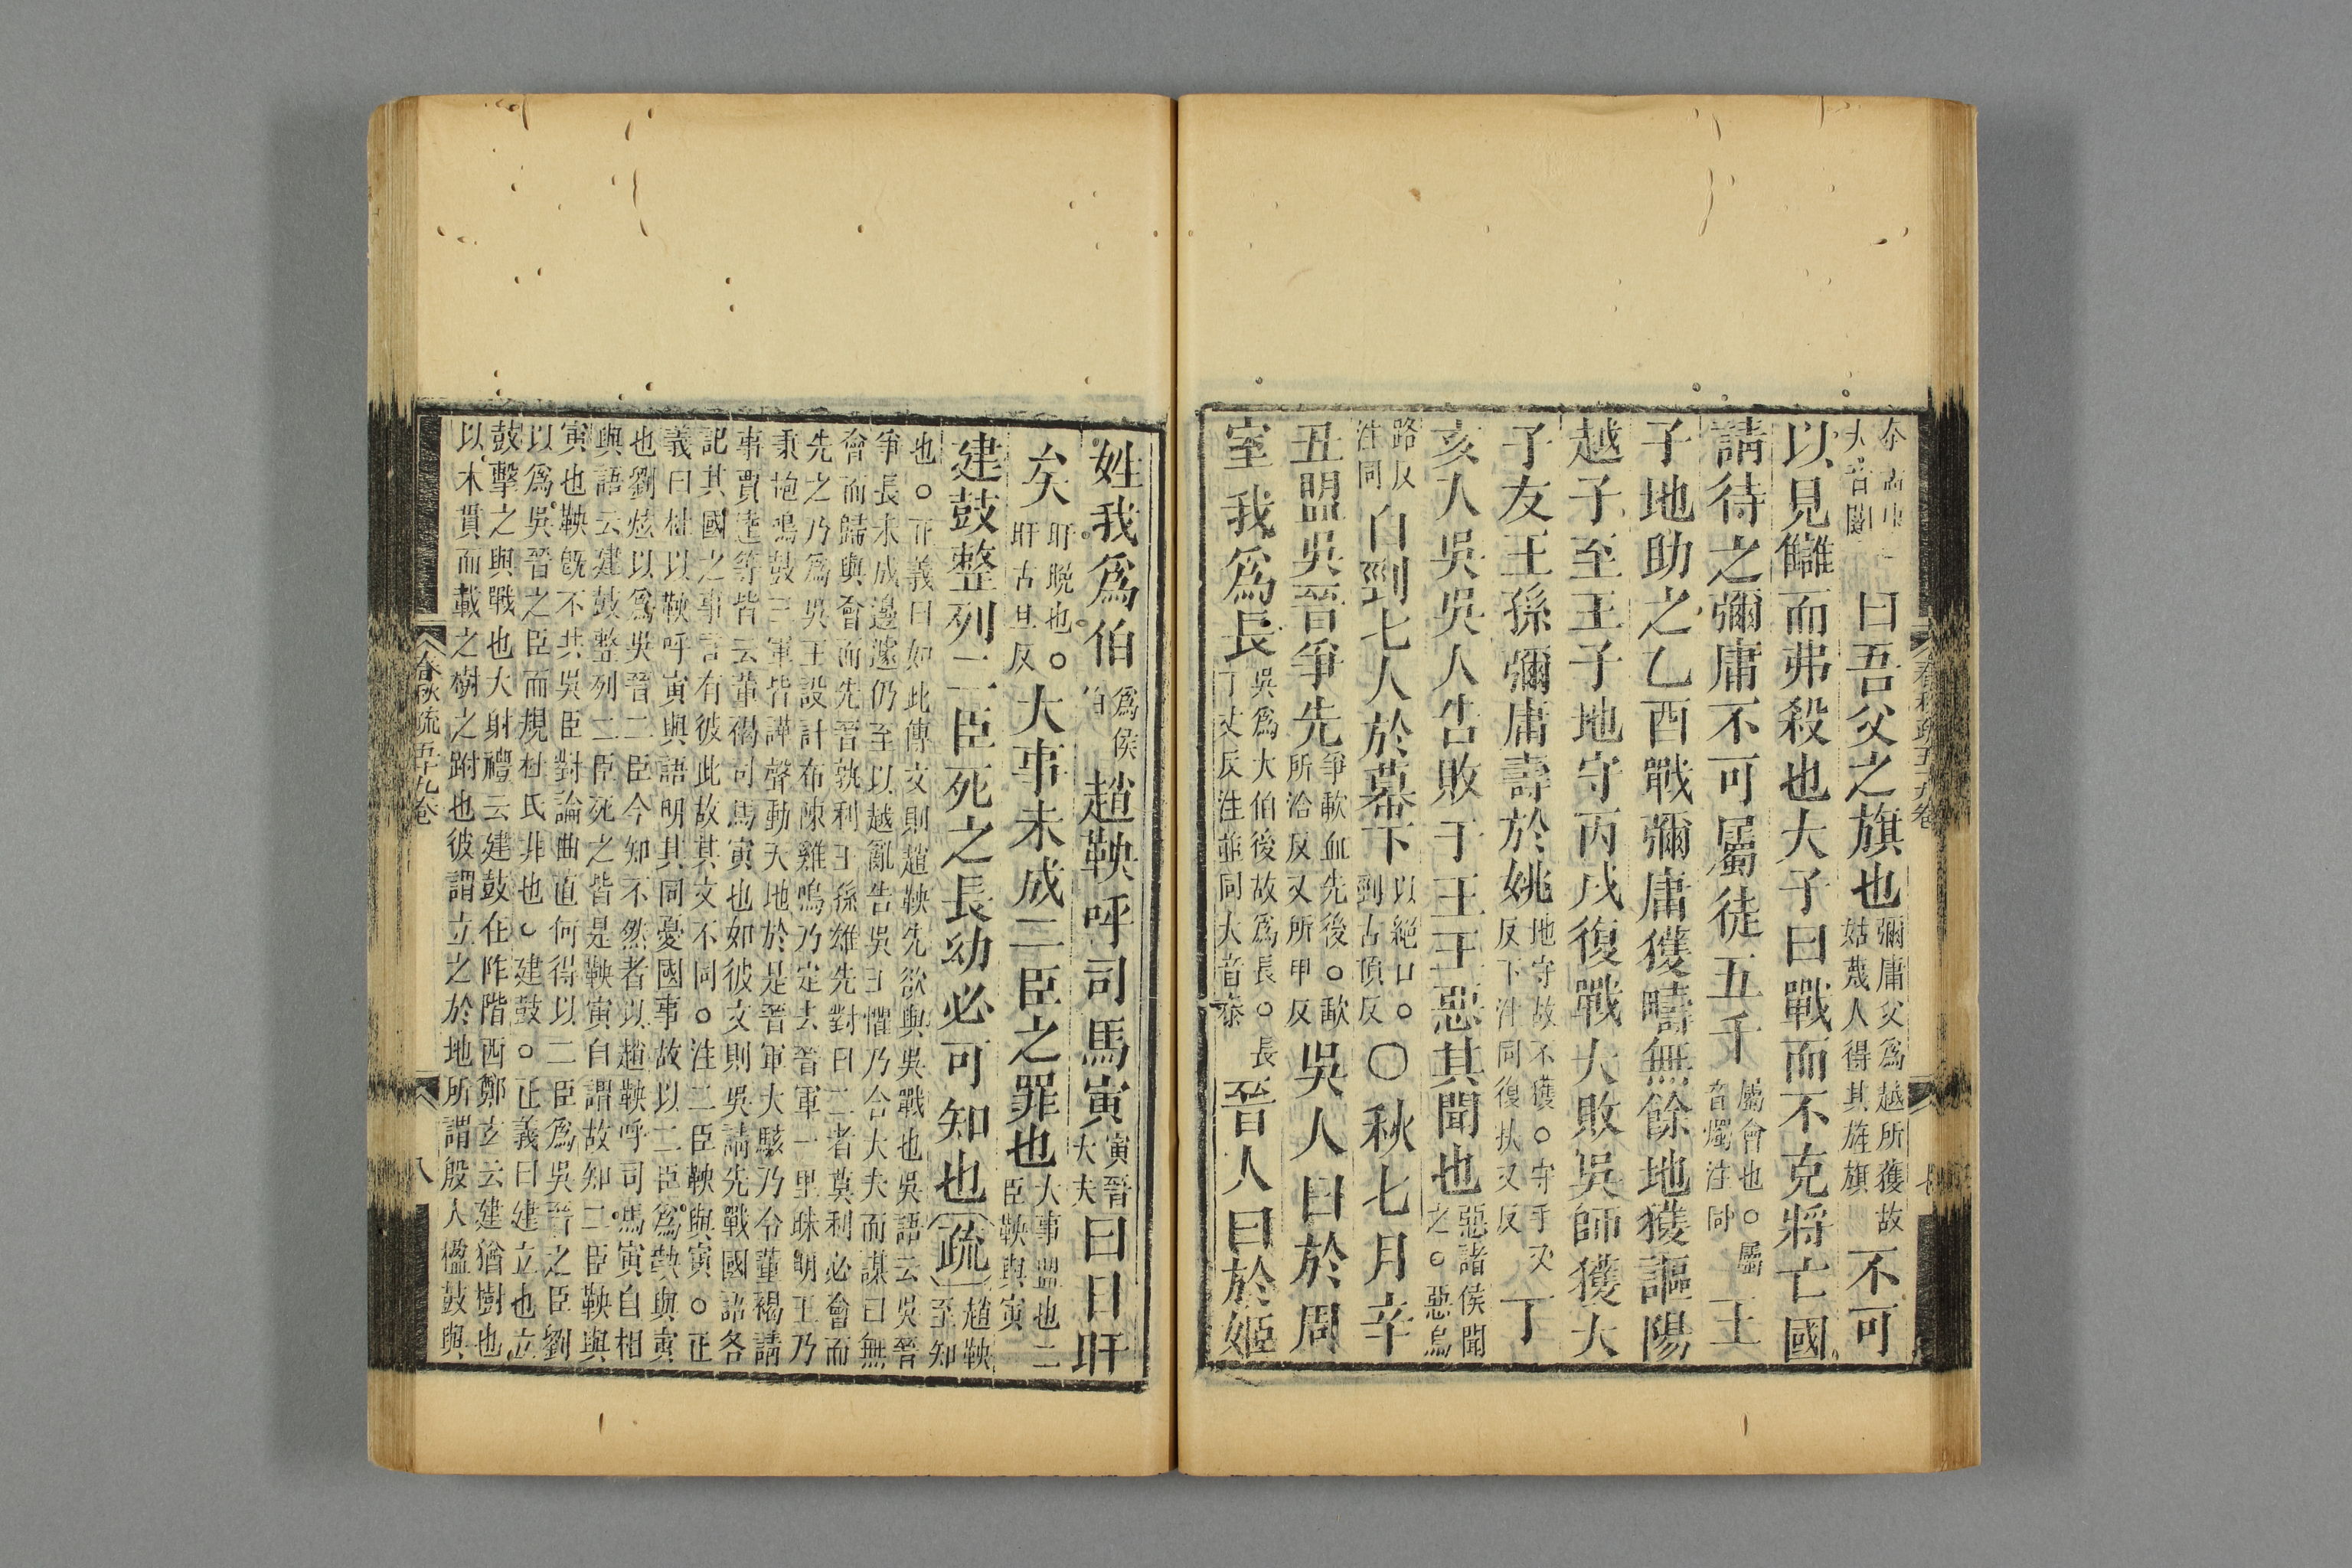 大音
曰吾父之旗也彌庸父爲越所獲故
姑蔑人得其旌旗不可
以見讎而弗殺也大子曰戰而不克將亡國
請待之彌庸不可屬徒五千屬會也○屬
音燭注同王
子地助之乙酉戰彌庸獲疇無餘地獲謳陽
越子至王子地守丙戌復戰大敗吳師獲大
子友王孫彌庸壽於姚地守故不獲○守手又
反下注同復扶又反丁
亥入吳吳人告敗于王王惡其聞也惡諸侯聞
之○惡烏
路反
注同自剄七人於幕下以絕口○
剄古頂反○秋七月辛
丑盟吳晉爭先爭歃血先後○歃
所洽反又所甲反吳人曰於周
室我爲長吳爲大伯後故爲長○長
丁丈反注並同大音泰晉人曰於姬
春秋疏五十九卷
姓我爲伯爲侯
伯趙鞅呼司馬寅寅晉
大夫曰日旰
矣旰晚也○
旰古旦反大事未成二臣之罪也大事盟也二
臣鞅與寅
建鼓整列二臣死之長幼必可知也疏趙鞅
至知
也○正義曰如此傳文則趙鞅先欲與吳戰也吳語云吳晉
爭長未成邊遽仍至以越亂告吳王懼乃合大夫而謀曰無
會而歸與會而先晉孰利王孫雄先對曰二者莫利必會而
先之乃爲吳王設計布陳雞鳴乃定去晉軍一里昧明王乃
秉枹鳴鼓三軍皆譁聲動天地於是晉軍大駭乃令董褐請
事賈逵等皆云董褐司馬寅也如彼文則吳請先戰國語各
記其國之事言有彼此故其文不同○注二臣鞅與寅○正
義曰杜以鞅呼寅與語明其同憂國事故以二臣爲鞅與寅
也劉炫以爲吳晉二臣今知不然者以趙鞅呼司馬寅自相
與語云建鼓整列二臣死之皆是鞅寅自謂故知二臣鞅與
寅也鞅旣不共吳臣對論曲直何得以二臣爲吳晉之臣劉
以爲吳晉之臣而規杜氏非也○建鼓○正義曰建立也立
鼓擊之與戰也大射禮云建鼓在阼階西鄭玄云建猶樹也
以木貫而載之樹之跗也彼謂立之於地所謂殷人楹鼓與
春秋疏五十九卷
八